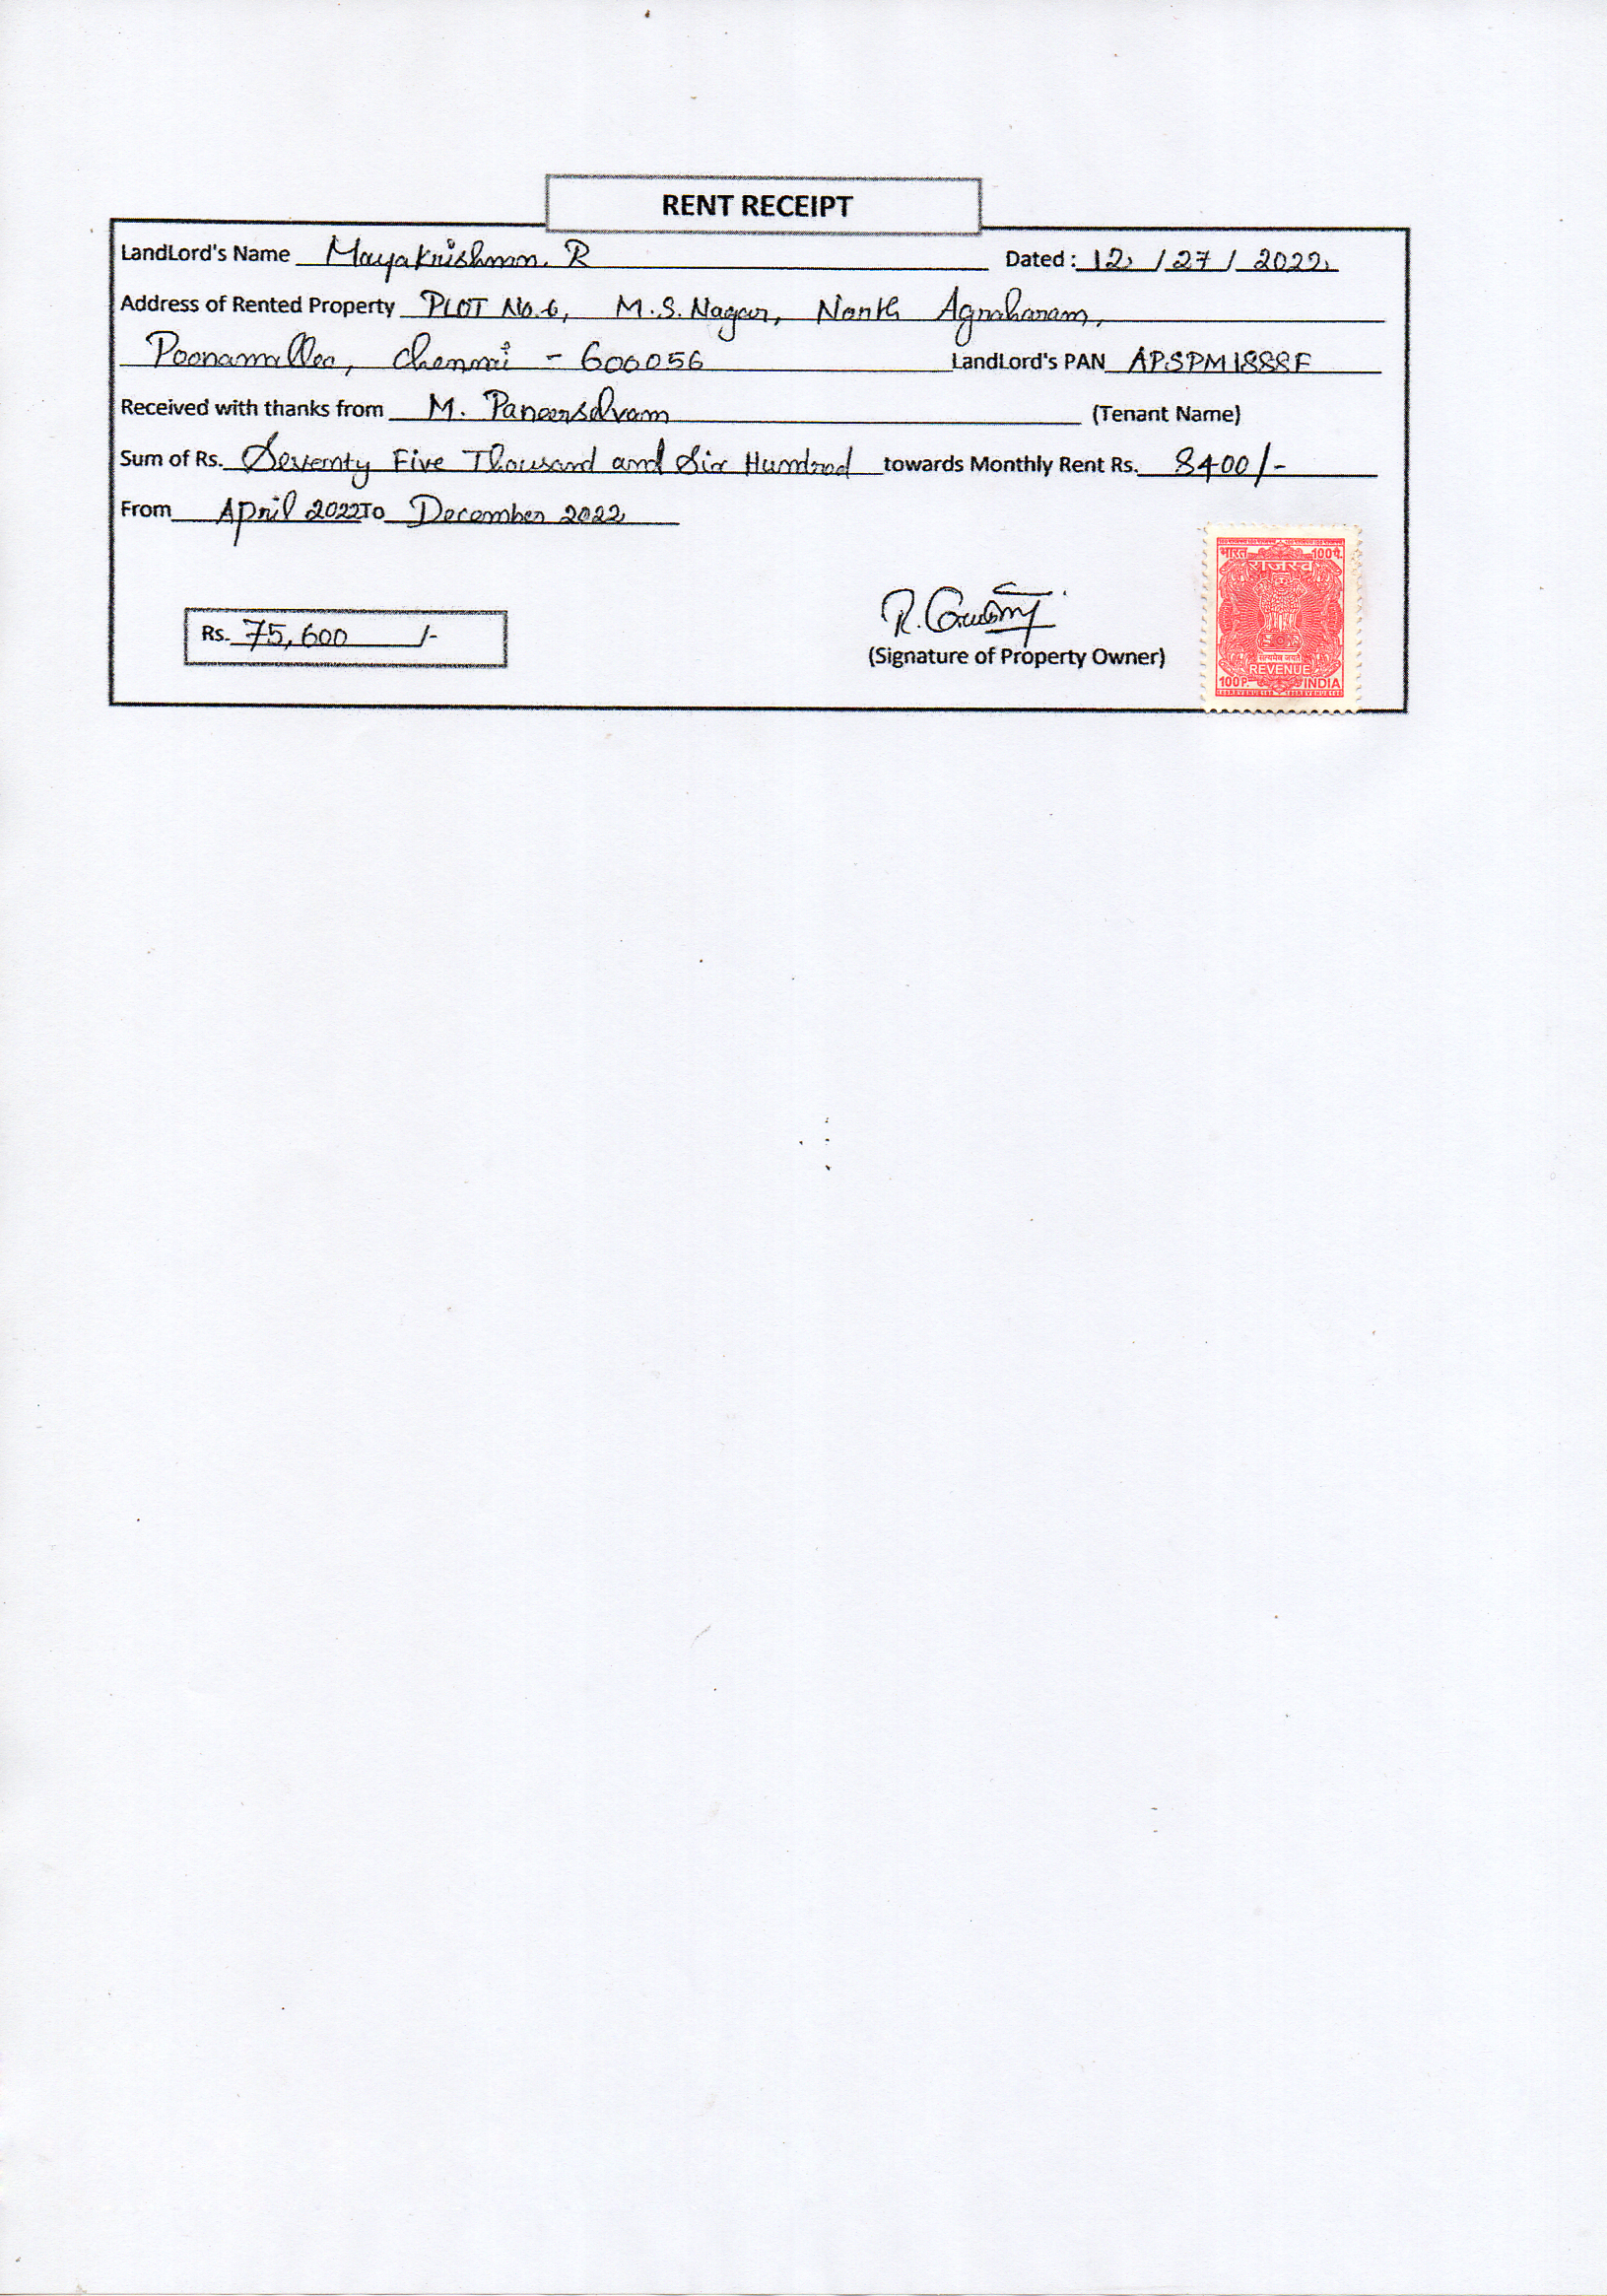 RENT RECEIPT
LandLord's Name Mayakrishnan. R Dated : 12 / 27 / 2022
Address of Rented Property PLOT No.6, M.S.Nagar, North Agraharam,
Poonamallee, Chennai - 600056 LandLord's PAN APSPM1888F
Received with thanks from M. Paneerselvam (Tenant Name)
Sum of Rs. Seventy Five Thousand and Six Hundred towards Monthly Rent Rs. 8400/-
From April 2022 To December 2022
भारत 100पै.
राजस्व
Rs. 75,600 /-
R.
(Signature of Property Owner)
सत्यमेव जयते
REVENUE
100P. INDIA